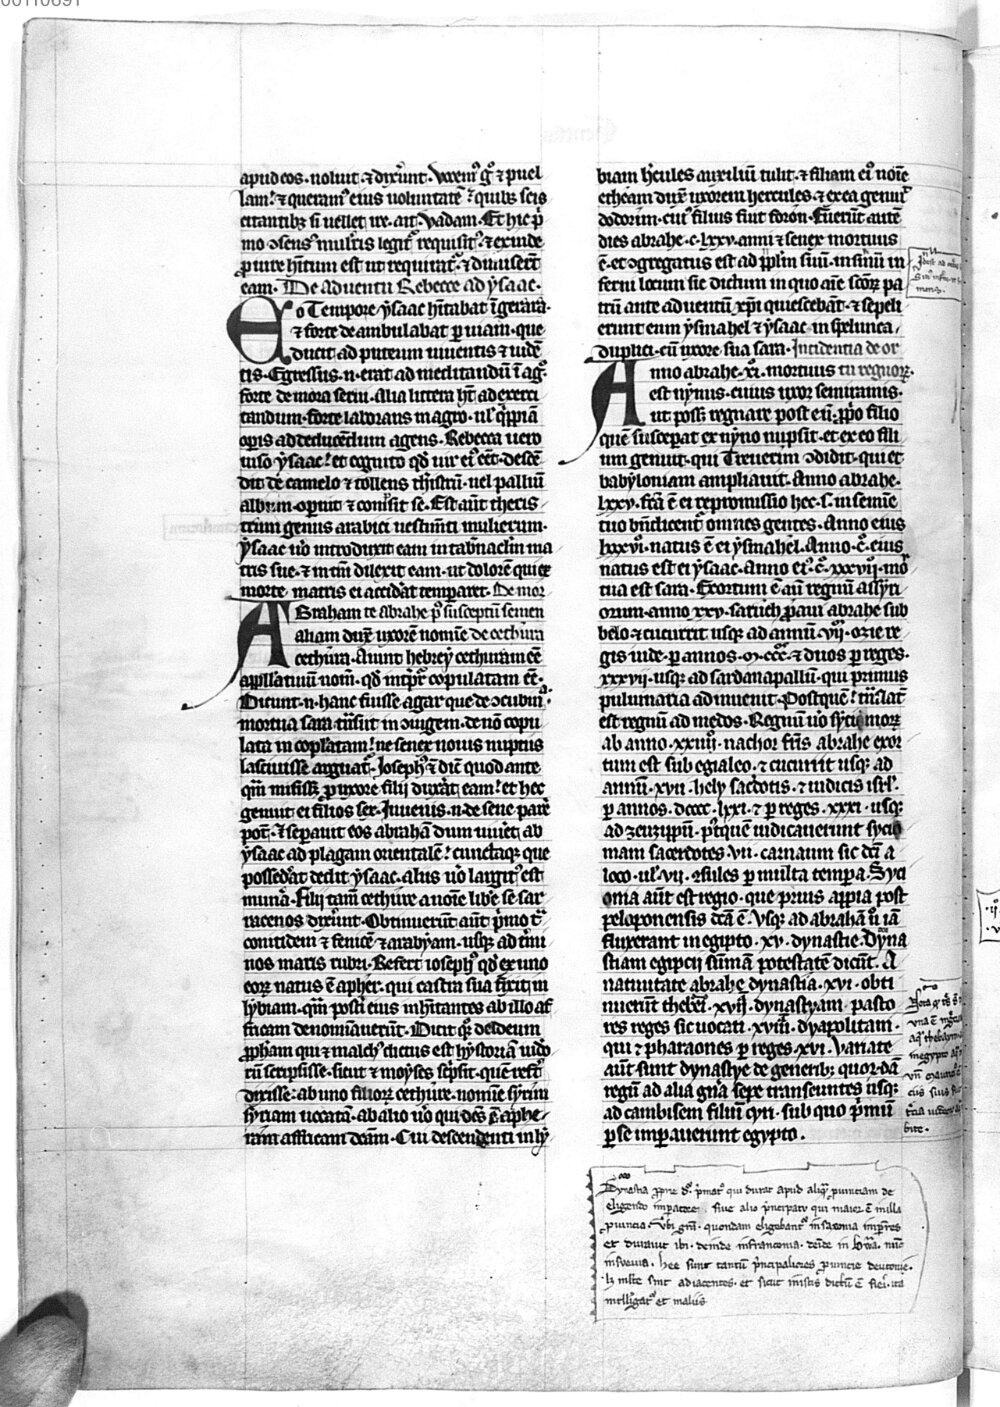 00110691
apud eos. noluit. ⁊ dixer̄t. Vocem᷒ g̊. ⁊ puel
lam. ⁊ queram᷒ eius voluntatē. quib᷒ scis
citantib᷒ si vellet ire. ait. Vadam. Et hic p̄
mo ↄsens᷒ mulīris legit᷑ requisit᷒. ⁊ exinde
pro iure h̄itum est ut requirat᷑. ⁊ dimiser̄t
eam. De aduentu Rebecce ad ysaac.
Eo Tempore ysaac h̄itabat ī gerara.
⁊ forte deambulabat ꝑ uiam. que
ducit ad puteum uiuentis ⁊ uidē
tis. Egressus. n̄. erat ad meditandū ī ag̊.
forte de mora serui. Alia littera h̄t ad exerci
tandum. forte laborans in agro. ul̓ q̄ppiā
opis ad deducendum agens. Rebecca uero
uiso ysaac. et cognito qd̓ uir ei᷒ eēt. descē
dit de camelo ⁊ tollens th̓istrū. uel palliū
album. operuit ⁊ com̄sit se. Est aūt theris
trum genus arabici uestim̄ti mulierum.
ysaac u̓o introduxit eam in tab̓naclm̄ ma
tris sue. ⁊ in tm̄ dilexit eam. ut dolorē qui ex
morte matris ei accid̓at temparet. De mor
ABraham te Abrahe p̓ susceptū semen
aliam dux̄ uxorē nomīe de cethura
cethura. Aiunt hebrey cethuram eē
appllatiuū nom̄. qd̓ int̓p̓r copulatam eē.
Dicunt. n̄. hanc fuisse agar que de ↄcubīa
mortua sara tn̄siit in ↄiugem. de nō copu
lata in coplatam. ne senex nouis nuptiis
lasciuisse arguat᷑. Joseph᷒ ⁊ dīc quod ante
q̄m misiss̄ pro uxore filij dux̄at eam. et hec
genuit ei filios sex. Juuenis. n̄. de sene parē
pot̄. ⁊ separauit eos abrahā dum uiuēt ab
ysaac ad plagam orientalē. cunctaq᷒ que
possed̓at dedit ysaac. aliis u̓o largit᷒ est
mun̓a. Filij tam̄ cethure a noīe lib̓e se sar
racenos dixer̄t. Obtinuerūt aūt p̄mo t̓
conitidem ⁊ fenicē ⁊ arabyam. usq᷒ ad t̓mi
nos maris rubri. Refert ioseph᷒ qd̓ ex uno
eorꝝ natus ē apher. qui castra sua fixit in
lybiam. q̄m post̓i eius inh̓itantes ab illo af
fricam denomīauerūt. Dicit q᷒ deldeum
prop̄ham qui ⁊ malch᷒ dictus est hystoriā iudo
rū scripsisse. sicut ⁊ moyses sc̓psit. que ref̓t
dixisse. ab uno filiorꝝ cethure. nomīe syrim
syriam uocatā. ab alio u̓o qui dc̄s ē aphe
ram affricam dc̄am. Cui descendenti in ly
biam h̓cules auxiliū tulit. ⁊ filiam ei᷒ noīe
etheam dux̄ uxorem hercules. ⁊ ex ea genuit᷑
dodorim. cui᷒ filius fuit foron. Fuerūt autē
dies abrahe. c. lxxv. anni. ⁊ senex mortuus
ē. et ↄgregatus est ad pp̄lm̄ suū. in sinū in
ferni locum sic dictum in quo aīe scōꝝ pa
trū ante aduentū xp̄i quiescebāt. ⁊ sepeli
erunt eum ysmahel ⁊ ysaac in spelunca
duplici. cū uxore sua sara. Incidentia de or
Anno abrahe. xi. mortuus tu regnorꝝ.
est nynus. cuius uxor semiramis.
ut poss̄ regnare post eū. prop̄o filio
quē suscep̓at ex nyno nupsit. et ex eo fili
um genuit. qui Treuerim ↄdidit. qui et
babyloniam ampliauit. Anno abrahe.
lxxv. f̄ca ē ei repromissio hec. s. in semīe
tuo bn̄dicent᷑ omnes gentes. Anno eius
lxxxvi. natus ē ei ysmahel. Anno. c̄. eius
natus est ei ysaac. Anno ei᷒. c̄. xxxvij. mō
tua est sara. Exortum ē aū regnū assyri
orum. anno. xxv. saruch p̓aui abrahe sub
belo. ⁊ cucurrit usq᷒ ad annū. vij. ozie re
gis iude. ꝑ annos. m. ccc. ⁊ duos ꝑ reges.
xxxvij. usq᷒ ad sardanapallū. qui primus
puluinaria adinuenit. Postquē. tn̄slat̄
est regnū ad medos. Regnū u̓o sycimorꝝ
ab anno. xxiiij. nachor fr̄is abrahe exor
tum est sub egialeo. ⁊ cucurrit usq᷒ ad
annū. xvij. hely sac̓dotis. ⁊ iudicis isrl̓.
ꝑ annos. dccc. lxxi. ⁊ ꝑ reges. xxxi. usq᷒
ad zeuzippū. p᷒tquē iudicauerunt sycio
niam sacerdotes. vii. carnarum sic dc̄i a
loco. ul̓. vii. ↄsules ꝑ multa tempora. Syci
onia aūt est regio. que prius appia post
peloponensis dc̄a ē. Vsq᷒ ad abrahā u̓ iā
fluxerant in egipto. xv. dynastie. Dyna
stiam egiptii sūmam potestatē dicūt. A
natiuitate abrahe dynastia. xvi. obti
nuerūt thebei. xvij. dynastyam. pasto
res reges sic uocati. xviij. dyapolitani.
qui ⁊ pharaones ꝑ reges. xvi. Variate
aūt sunt dynastye de generib᷒ quor̄dā
regū ad alia gn̄a sepe transeuntes usq᷒
ad cambisem filiū cyri. sub quo p̄mū
ꝑse imꝑauerunt egypto.
Dynastia prop̄e d̓r p̄mat᷒ qui durat apud aliq̄ prouinciam de
eligendo imꝑatore. siue alio p̓ncipatu qui maior ē in illa
prouincia. Vbi gr̄a. quondam eligebant᷑ in saxonia imꝑ̄res
et durauit ibi. deinde in franconia. deīde in b̓aria. nūc
in sueuia. hee sunt tantū p̓ncipaliores prouincie deutonie.
lꝫ ml̓te sint adiacentes. et sicut in istis dictū ē fieri. ita
intelligat᷑ et in aliis